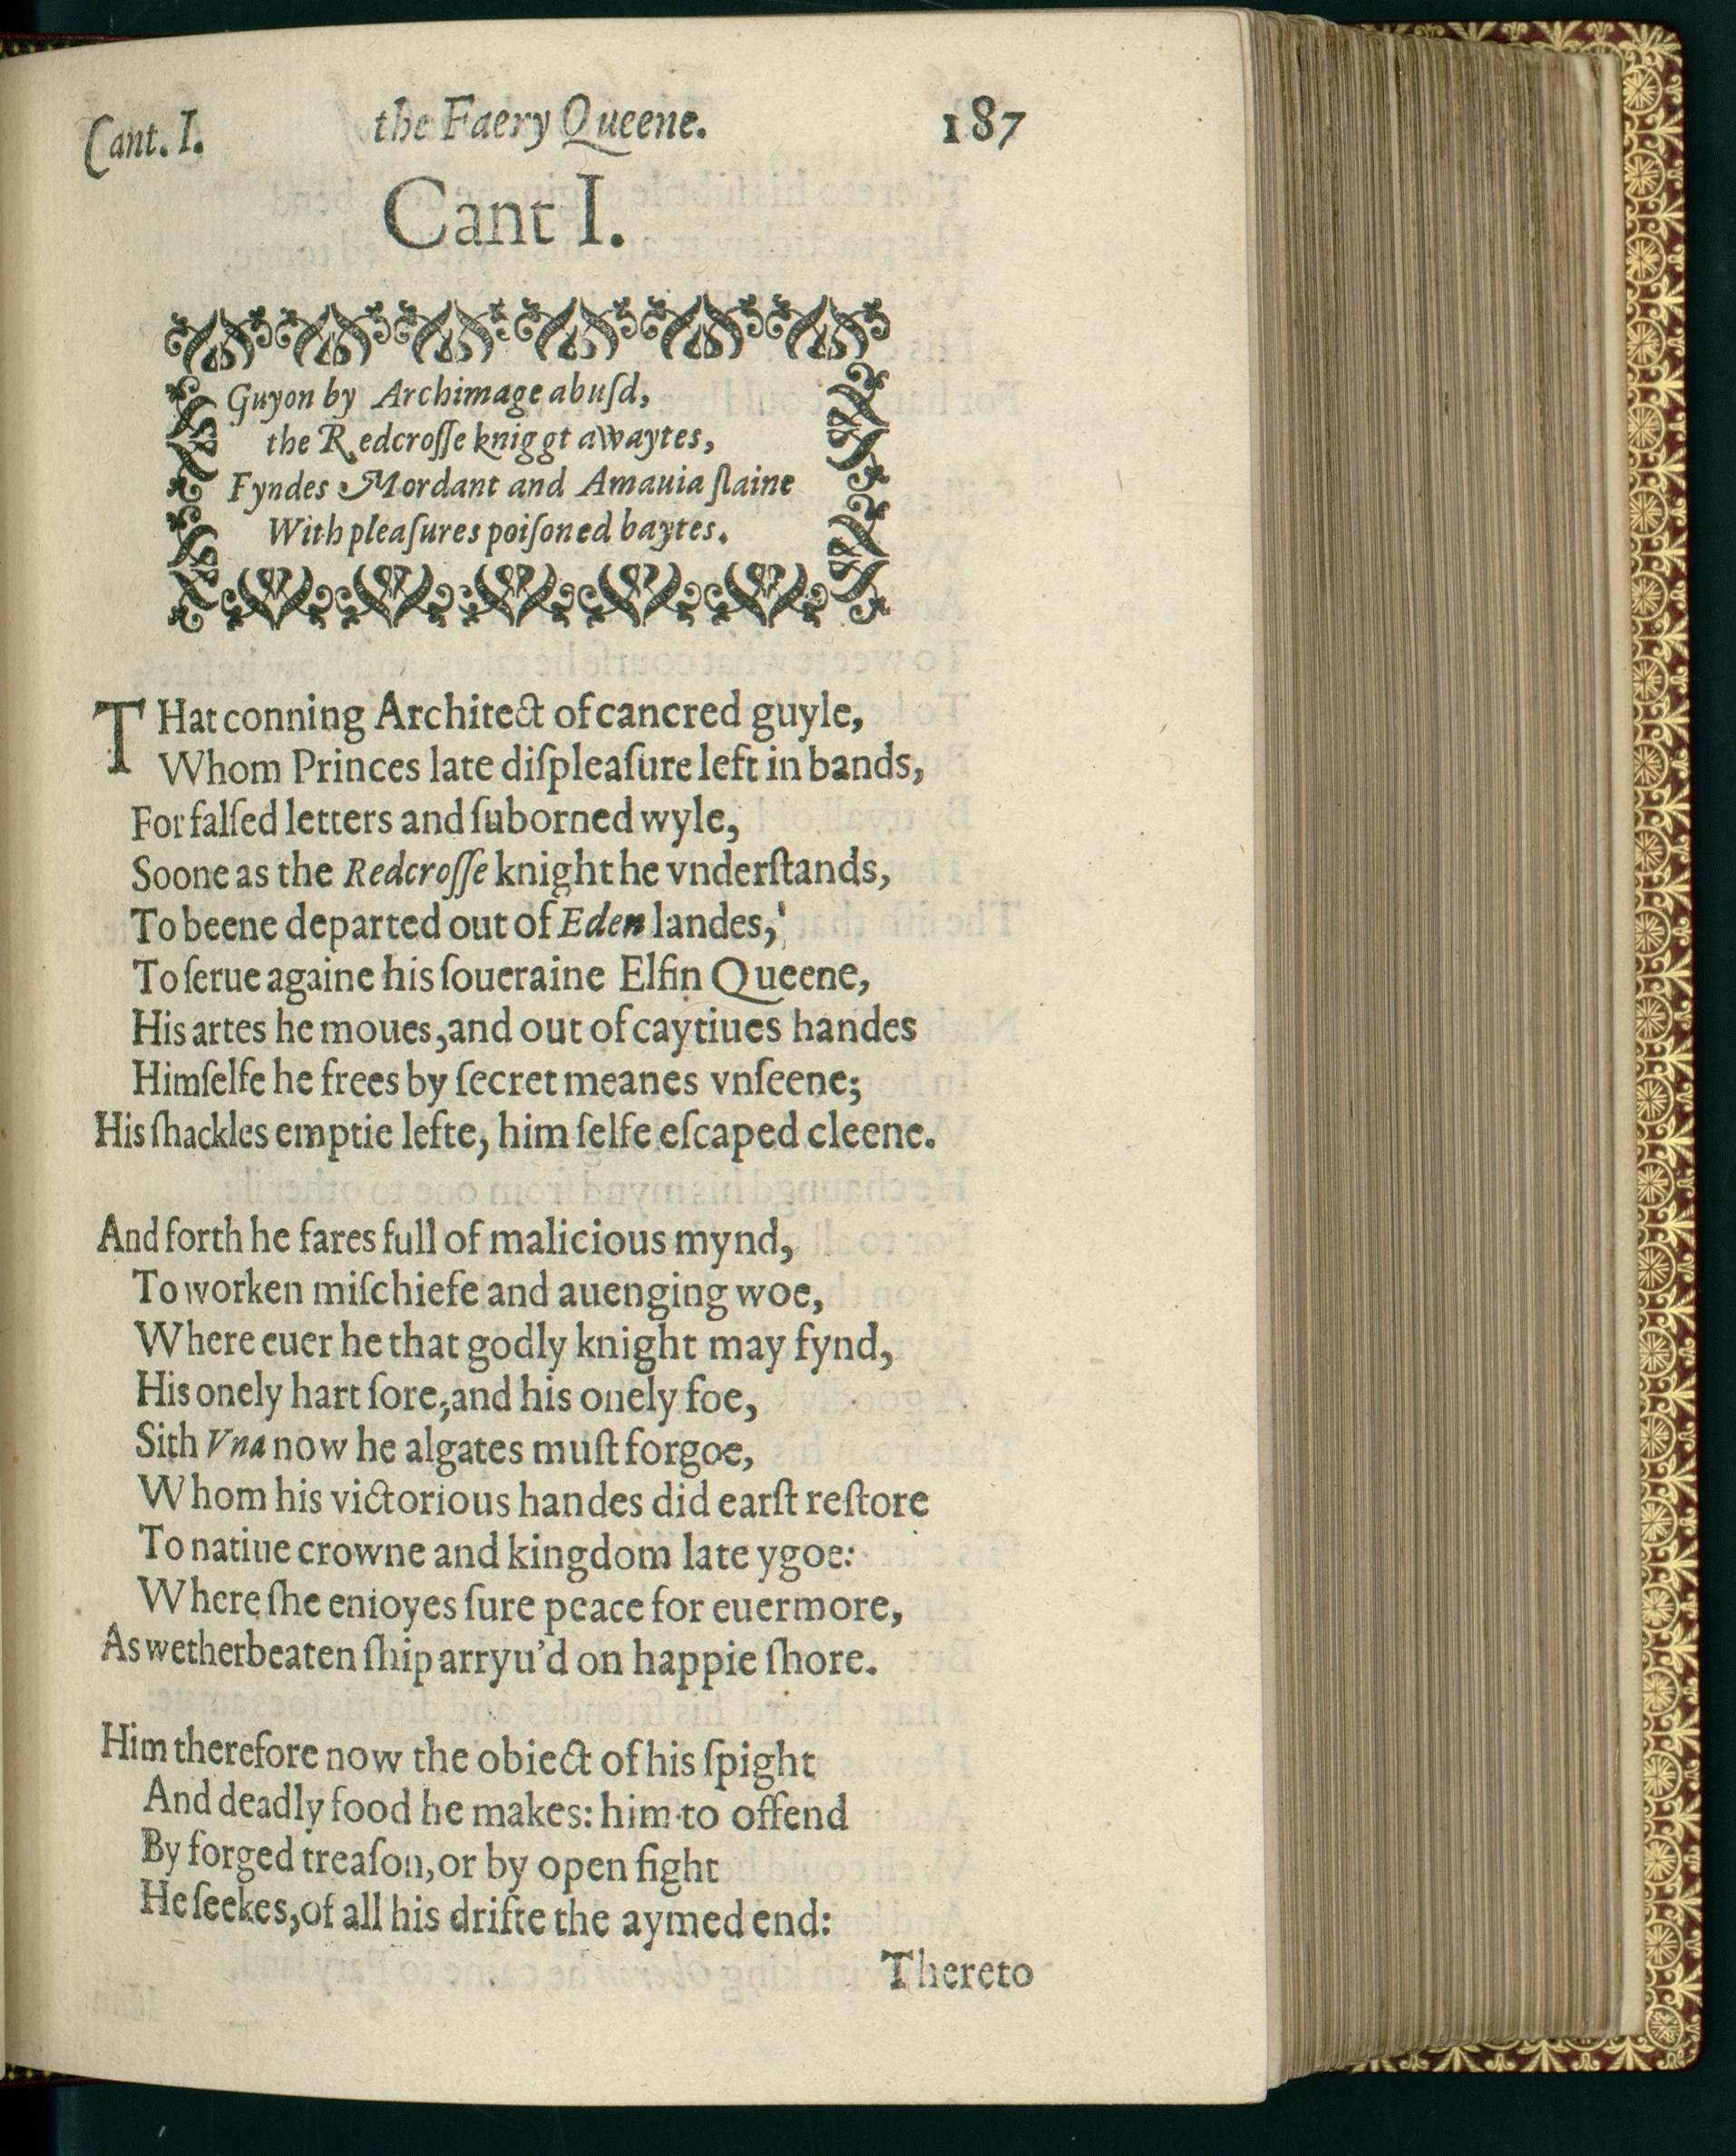 Cant. I. the Faery Queene. 187
Cant I.
Guyon by Archimage abuſd,
the Redcroſſe kniggt awaytes,
Fyndes Mordant and Amauia ſlaine
With pleaſures poiſoned baytes.
THat conning Architect of cancred guyle,
Whom Princes late diſpleaſure left in bands,
For falſed letters and ſuborned wyle,
Soone as the Redcroſſe knight he vnderſtands,
To beene departed out of Eden landes,'
To ſerue againe his ſoueraine Elfin Queene,
His artes he moues,and out of caytiues handes
Himſelfe he frees by ſecret meanes vnſeene;
His ſhackles emptie lefte, him ſelfe eſcaped cleene.
And forth he fares full of malicious mynd,
To worken miſchiefe and auenging woe,
Where euer he that godly knight may fynd,
His onely hart ſore,and his onely foe,
Sith Vna now he algates muſt forgoe,
Whom his victorious handes did earſt reſtore
To natiue crowne and kingdom late ygoe:
Where ſhe enioyes ſure peace for euermore,
As wetherbeaten ſhip arryu'd on happie ſhore.
Him therefore now the obiect of his ſpight
And deadly food he makes: him to offend
By forged treaſon, or by open fight
He ſeekes,of all his drifte the aymed end:
Thereto